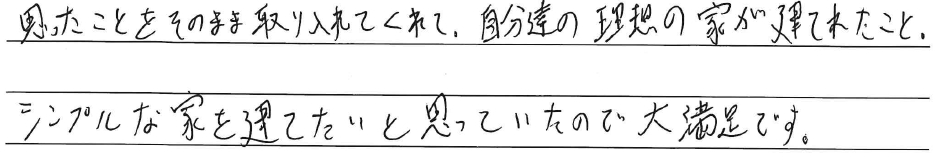 思ったことをそのまま取り入れてくれて、自分達の理想の家が建てれたこと。
シンプルな家を建てたいと思っていたので大満足です。